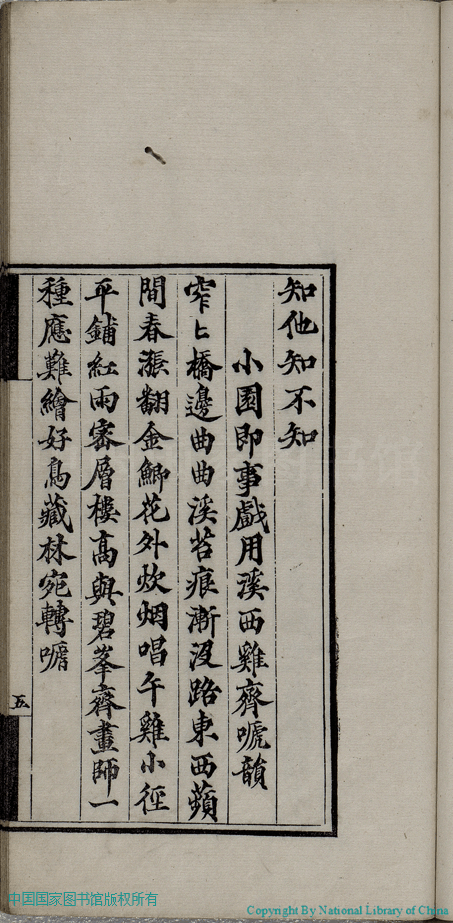 知他知不知
小園即事戲用溪西雞齊嗁韻
窄〻橋邊曲曲溪苔痕漸沒路東西蘋
間春漲翻金鯽花外炊烟唱午雞小徑
平鋪紅雨密層樓高與碧峯齊畫師一
種應難繪好鳥藏林宛轉嗁
五
中国国家图书馆版权所有
Copyright By National Library of China